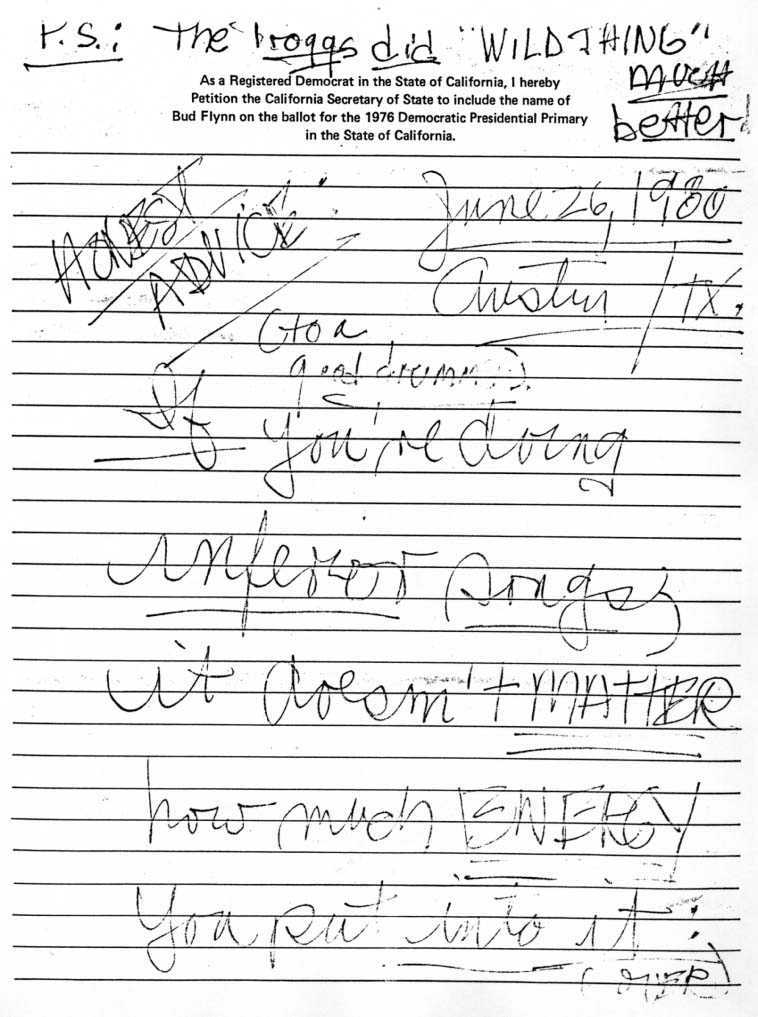 P.S.: The Troggs did "WILD THING"
MUCH
better!
As a Registered Democrat in the State of California, I hereby
Petition the California Secretary of State to include the name of
Bud Flynn on the ballot for the 1976 Democratic Presidential Primary
in the State of California.
HONEST
ADVICE:
June 26, 1980
Austin / TX.
(to a
good drummer).
If you're doing
inferior songs,
it doesn't MATTER
how much ENERGY
you put into it:
(OVER)